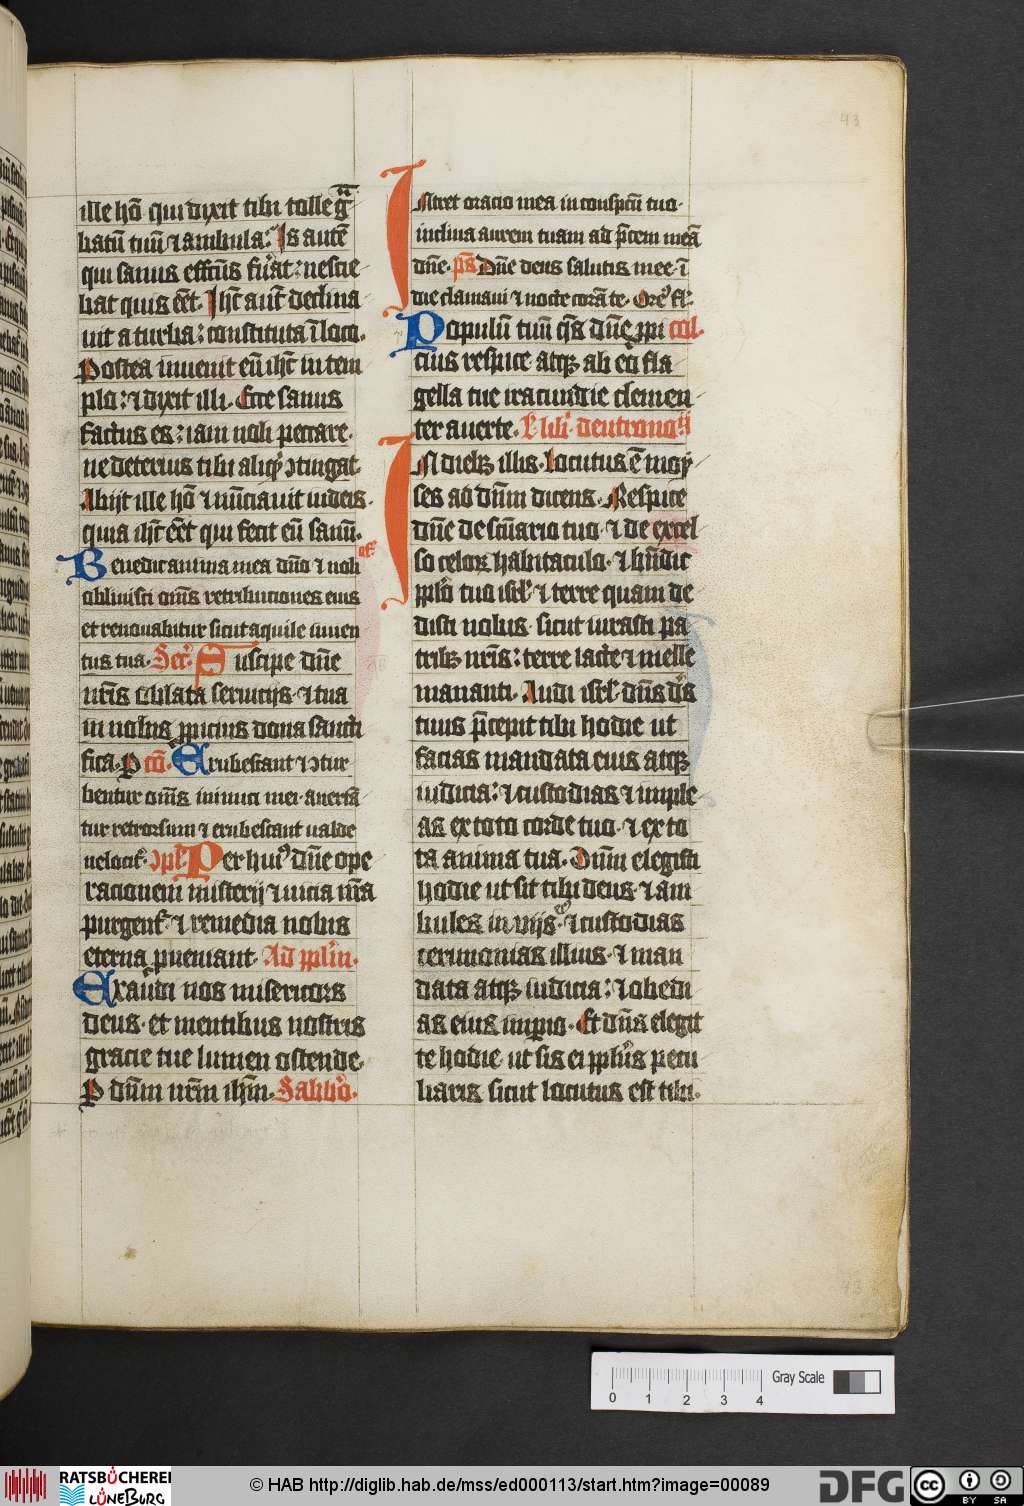 43
ille hō qui dixit tibi tolle g̃
batū tuū ⁊ ambula. Is autē
qui sanus effc̄us fu͛at: nescie
bat quis eēt. Ihc̄ aut̄ declina
uit a turba: constituta ī loco.
Postea inuenit eū ihc̄ in tem
plo: ⁊ dixit illi. Ecce sanus
factus es: iam noli peccare.
ne deterius tibi aliqͥ ↄtingat.
Abijt ille hō ⁊ nūciauit iudeis.
quia ihc̄ eēt qui fecit eū sanū. of̄
Benedic anima mea dn̄o ⁊ noli
obliuisci om̄s retributiones eius
et renouabitur sicut aquile iuuen
tus tua. Secr̄. Suscipe dn̄e
nr̄is oblata seruicijs. ⁊ tua
in nobis ꝓpicius dona sancti
fica. P cō. Erubescant ⁊ ↄtur
bentur om̄s inimici mei. auertā
tur retrorsum ⁊ erubescant ualde
uelocit͛. ↄpl̄. Per huiꝰ dn̄e ope
racionem misterij ⁊ uicia nr̄a
purgent͛. ⁊ remedia nobis
eterna ꝓueniant. Ad ppl̄m.
Exaudi nos misericors
deus. et mentibus nostris
gracie tue lumen ostende.
P dn̄m nr̄m ihm̄. Sabb̄o.
Intret oracio mea in conspc̄u tuo.
inclina aurem tuam ad p̄cem meā
dn̄e. ps̄ Dn̄e deus salutis mee. ī
die clamaui ⁊ nocte corā te. Ore͛ fl̄.
Populū tuū qs̄ dn̄e ꝓpi col.
cius respice atqꝫ ab eo fla
gella tue iracundie clemen
ter auerte. L̄ lib͛. deutronoīj
In diebꝫ illis. Locutus ē moy
ses ad dn̄m dicens. Respice
dn̄e de sc̄uario tuo. ⁊ de excel
so celoꝝ habitaculo. ⁊ bn̄dic
ppl̄o tuo isrl̄. ⁊ terre quam de
disti nobis. sicut iurasti pa
tribꝫ nr̄is: terre lacte ⁊ melle
mananti. Audi isrl̄. dn̄s ds̄
tuus p̄cepit tibi hodie ut
facias mandata eius atqꝫ
iudicia: ⁊ custodias ⁊ imple
as ex toto corde tuo. ⁊ ex to
ta anima tua. Dn̄m elegisti
hodie ut sit tibi deus. ⁊ am
bules in vijs eiꝰ. ⁊ custodias
cerimonias illius. ⁊ man
data atqꝫ iudicia: ⁊ obedi
as eius impio. Et dn̄s elegit
te hodie. ut sis ei pplū̄s pecu
liaris sicut locutus est tibi.
43
0 1 2 3 4
Gray Scale
RATSBÜCHEREI
LÜNEBURG
© HAB http://diglib.hab.de/mss/ed000113/start.htm?image=00089
DFG
cc BY SA